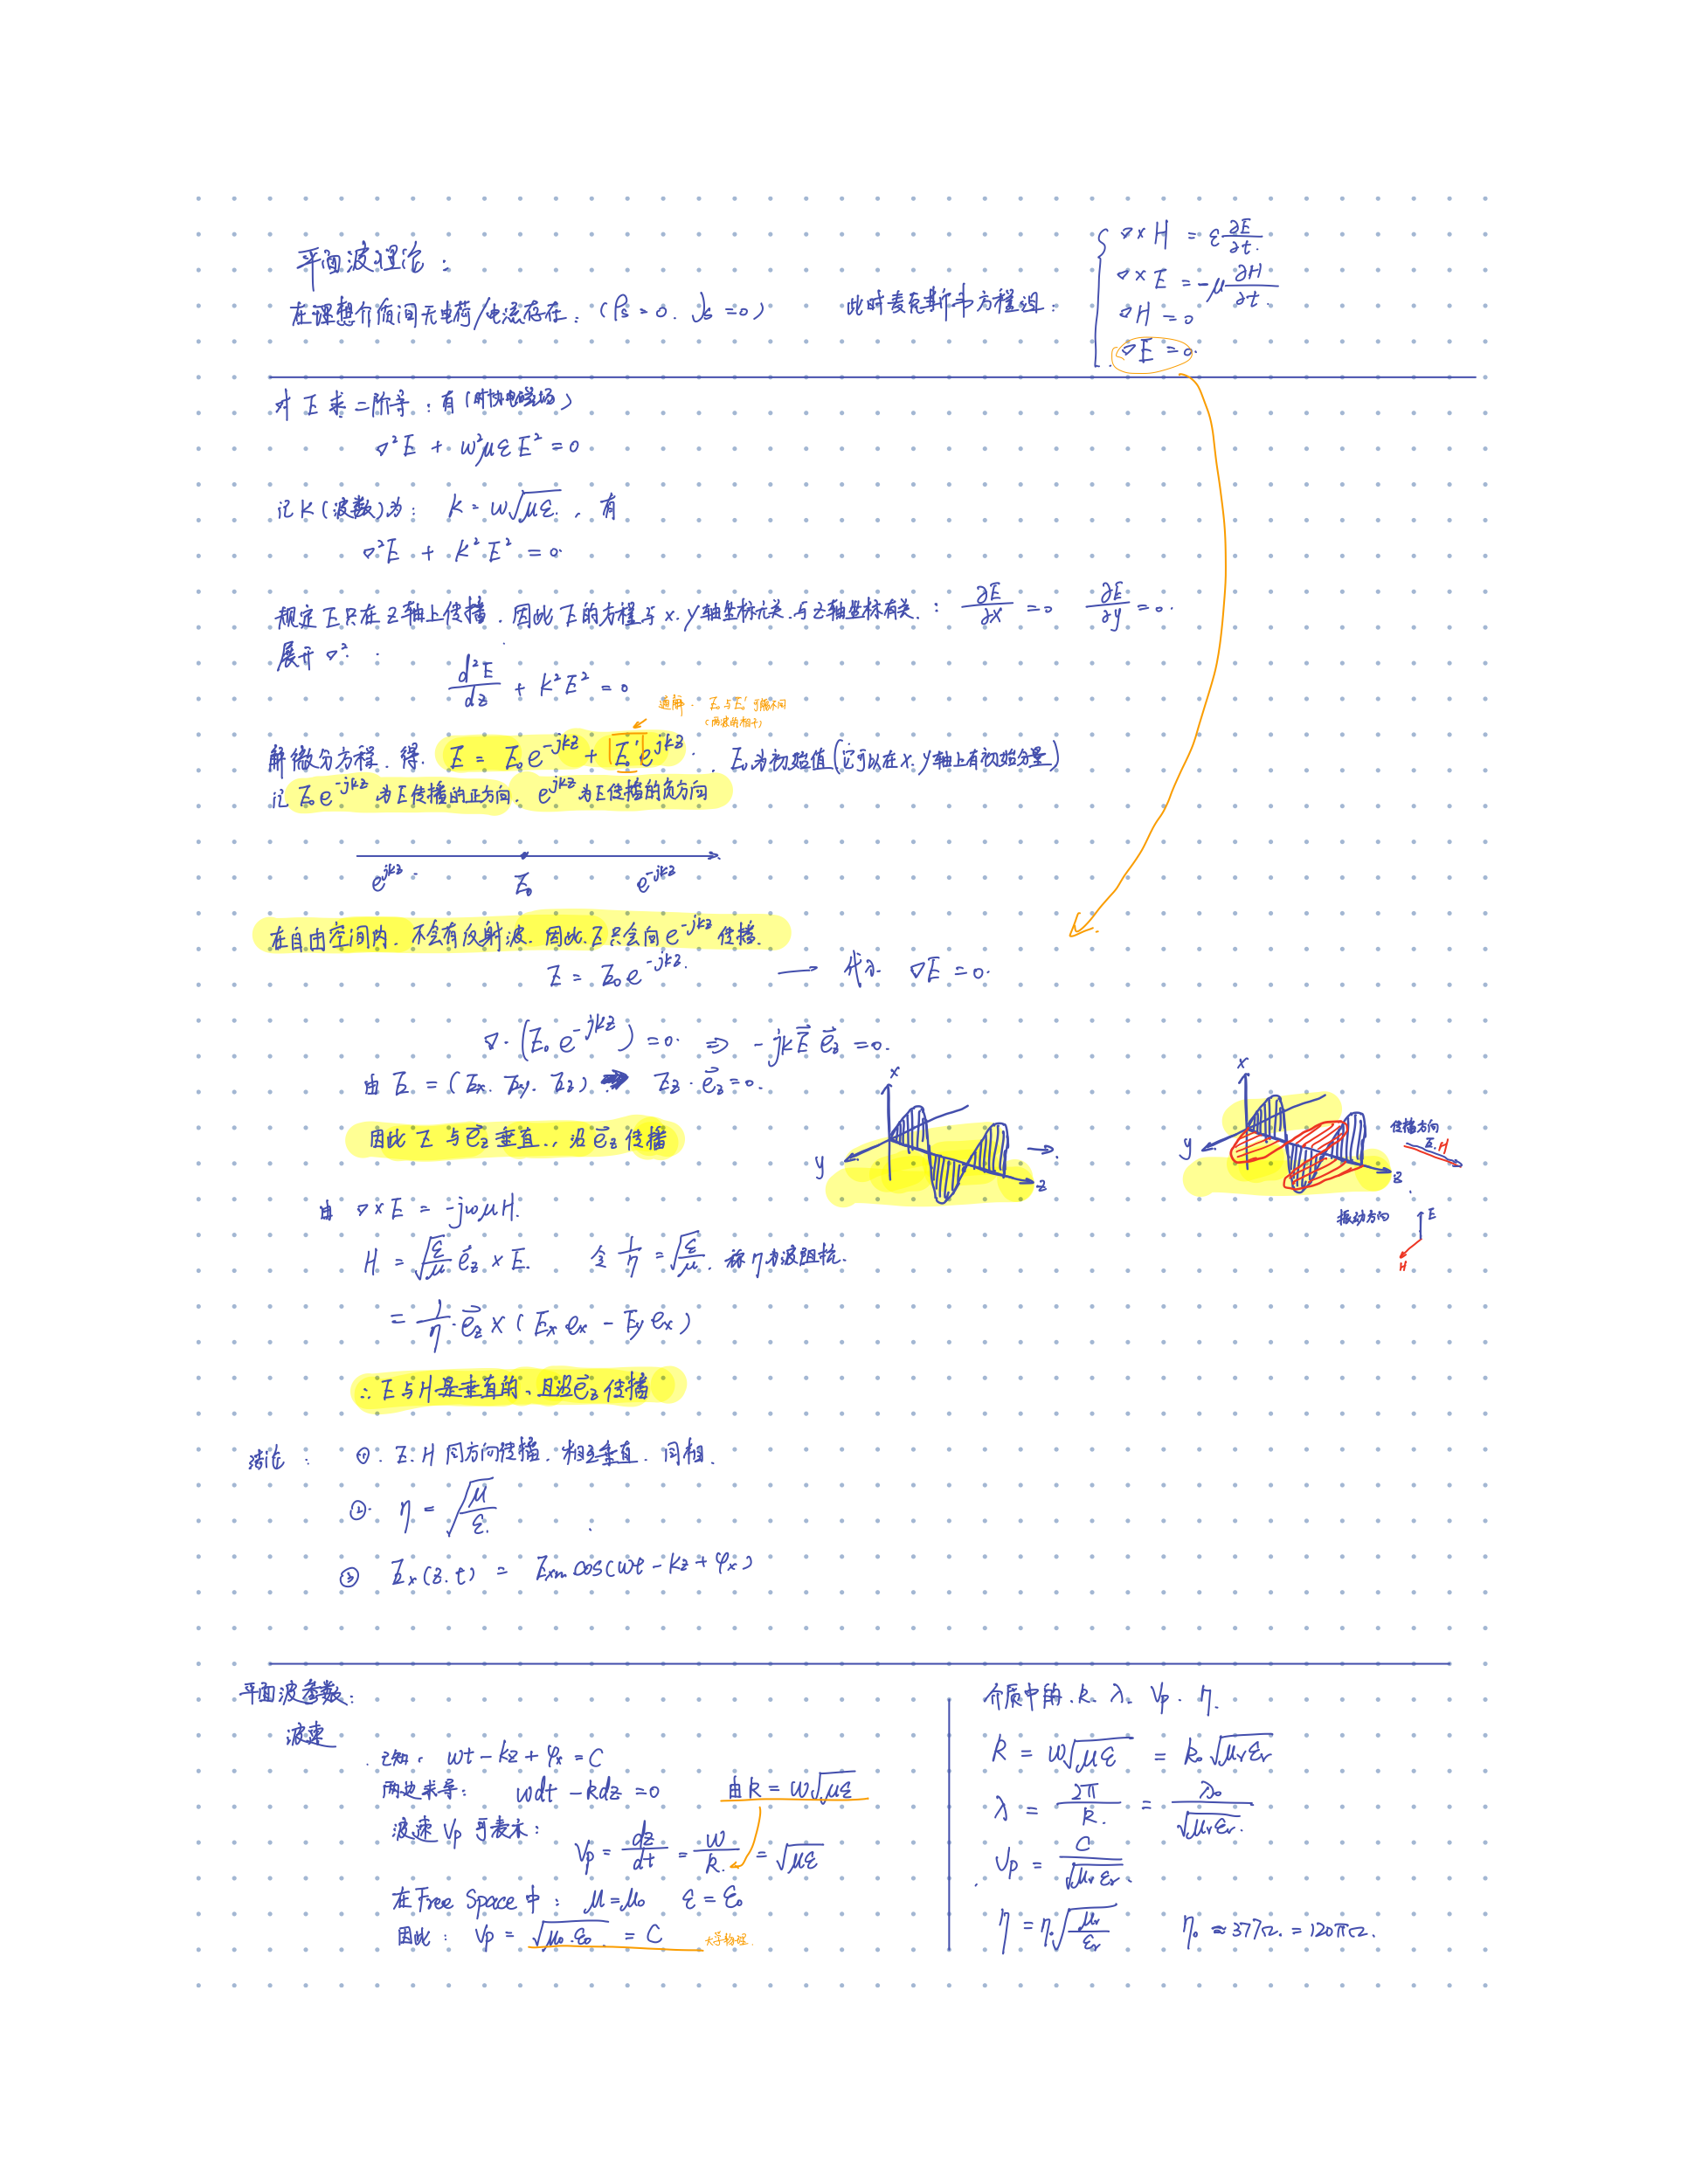 平面波理论：
在理想介质间无电荷/电流存在：(ρs = 0. Js = 0)
此时麦克斯韦方程组：
∇×H = ε ∂E/∂t.
∇×E = -μ ∂H/∂t.
∇H = 0
∇E = 0.
对 E 求二阶导：有 (时协电磁场)
∇²E + ω²με E² = 0
记 K (波数) 为：K = ω√με. , 有
∇²E + K² E² = 0.
规定 E 只在 z 轴上传播. 因此 E 的方程与 x. y 轴坐标无关. 与 z 轴坐标有关. : ∂E/∂x = 0 ∂E/∂y = 0.
展开 ∇²:
d²E/dz + K²E² = 0
通解. E₀与E₀' 可能不同
(两波的相干)
解微分方程. 得. E = E₀e^{-jkz} + E₀'e^{jkz}. . E₀为初始值(它可以在 x. y 轴上有初始分量)
记 E₀e^{-jkz} 为E传播的正方向. e^{jkz} 为E传播的负方向
e^{jkz}. E₀ e^{-jkz}
在自由空间内. 不会有反射波. 因此. E 只会向 e^{-jkz} 传播.
E = E₀e^{-jkz}. → 代入 ∇E = 0.
∇·(E₀ e^{-jkz}) = 0. ⇒ -jk E⃗ e⃗z = 0.
由 E = (Ex. Ey. Ez) ⇒ Ez · e⃗z = 0.
因此 E 与 e⃗z 垂直., 沿 e⃗z 传播
x
y
z
x
y
z
传播方向
E. H
振动方向
E
H
由 ∇×E = -jωμH.
H = √(ε/μ) e⃗z × E. 令 1/η = √(ε/μ). 称 η 为波阻抗.
= 1/η · e⃗z × (Ex ex - Ey ex)
∴ E 与 H 是垂直的、且沿 e⃗z 传播
结论： ①. E. H 同方向传播. 相互垂直. 同相.
②. η = √(μ/ε.)
③ Ex(z. t) = Exm cos(ωt - kz + φx)
平面波参数：
波速
已知. ωt - kz + φx = C
两边求导： ωdt - kdz = 0 由 k = ω√με
波速 Vp 可表示：
Vp = dz/dt = ω/k. = √με
在 Free Space 中： μ = μ₀ ε = ε₀
因此： Vp = √μ₀.ε₀ = C 大学物理.
介质中的. k. λ. Vp. η.
k = ω√με = k₀√μrεr
λ = 2π/k. = λ₀/√μrεr.
Vp = C/√μrεr.
η = η₀√(μr/εr) η₀ ≈ 377Ω. = 120πΩ.